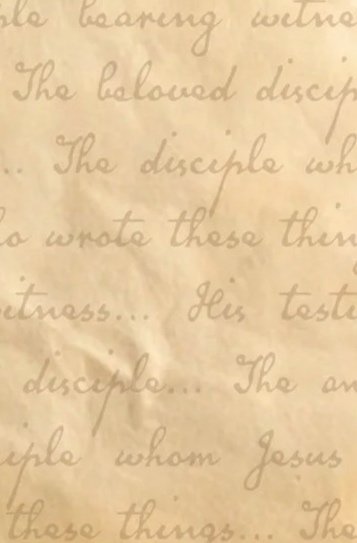 ple bearing witne
The beloved discip
... The disciple wh
ho wrote these thin
witness... His testi
disciple... The an
iple whom Jesus
these things... The